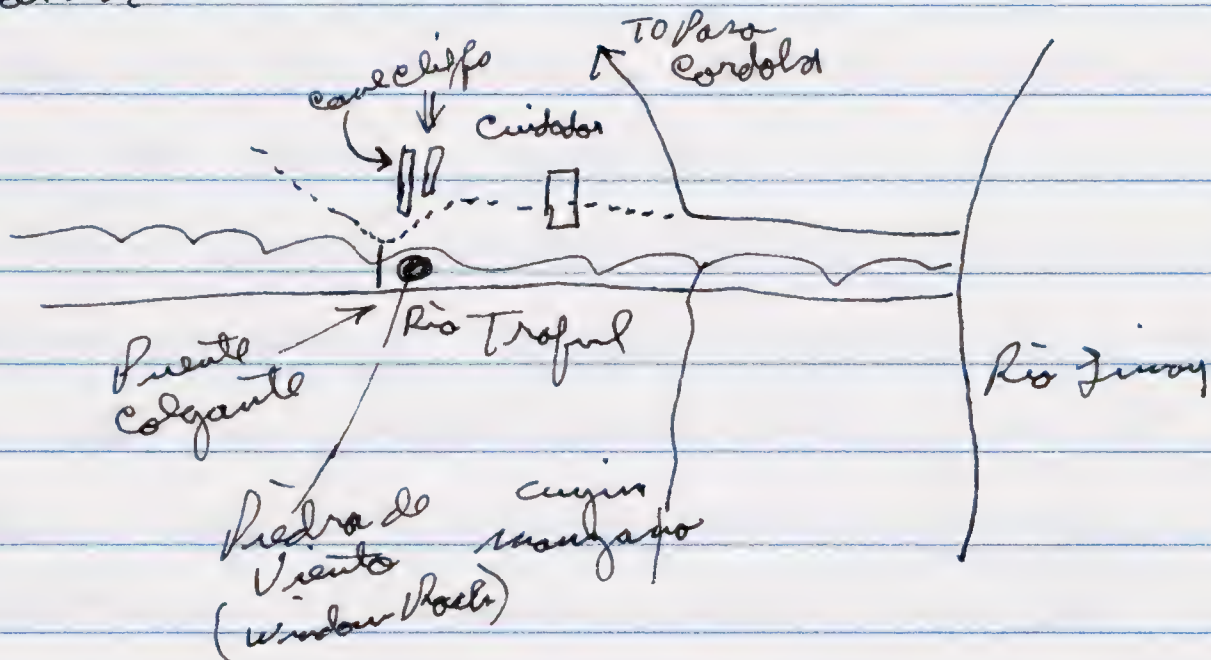 TO Paso
Cordoba
cave cliffs
Cuidador
Rio Traful
Puente
Colgante
Rio Limay
Piedra de
Viento
(Window Rock)
cuyin
manzano